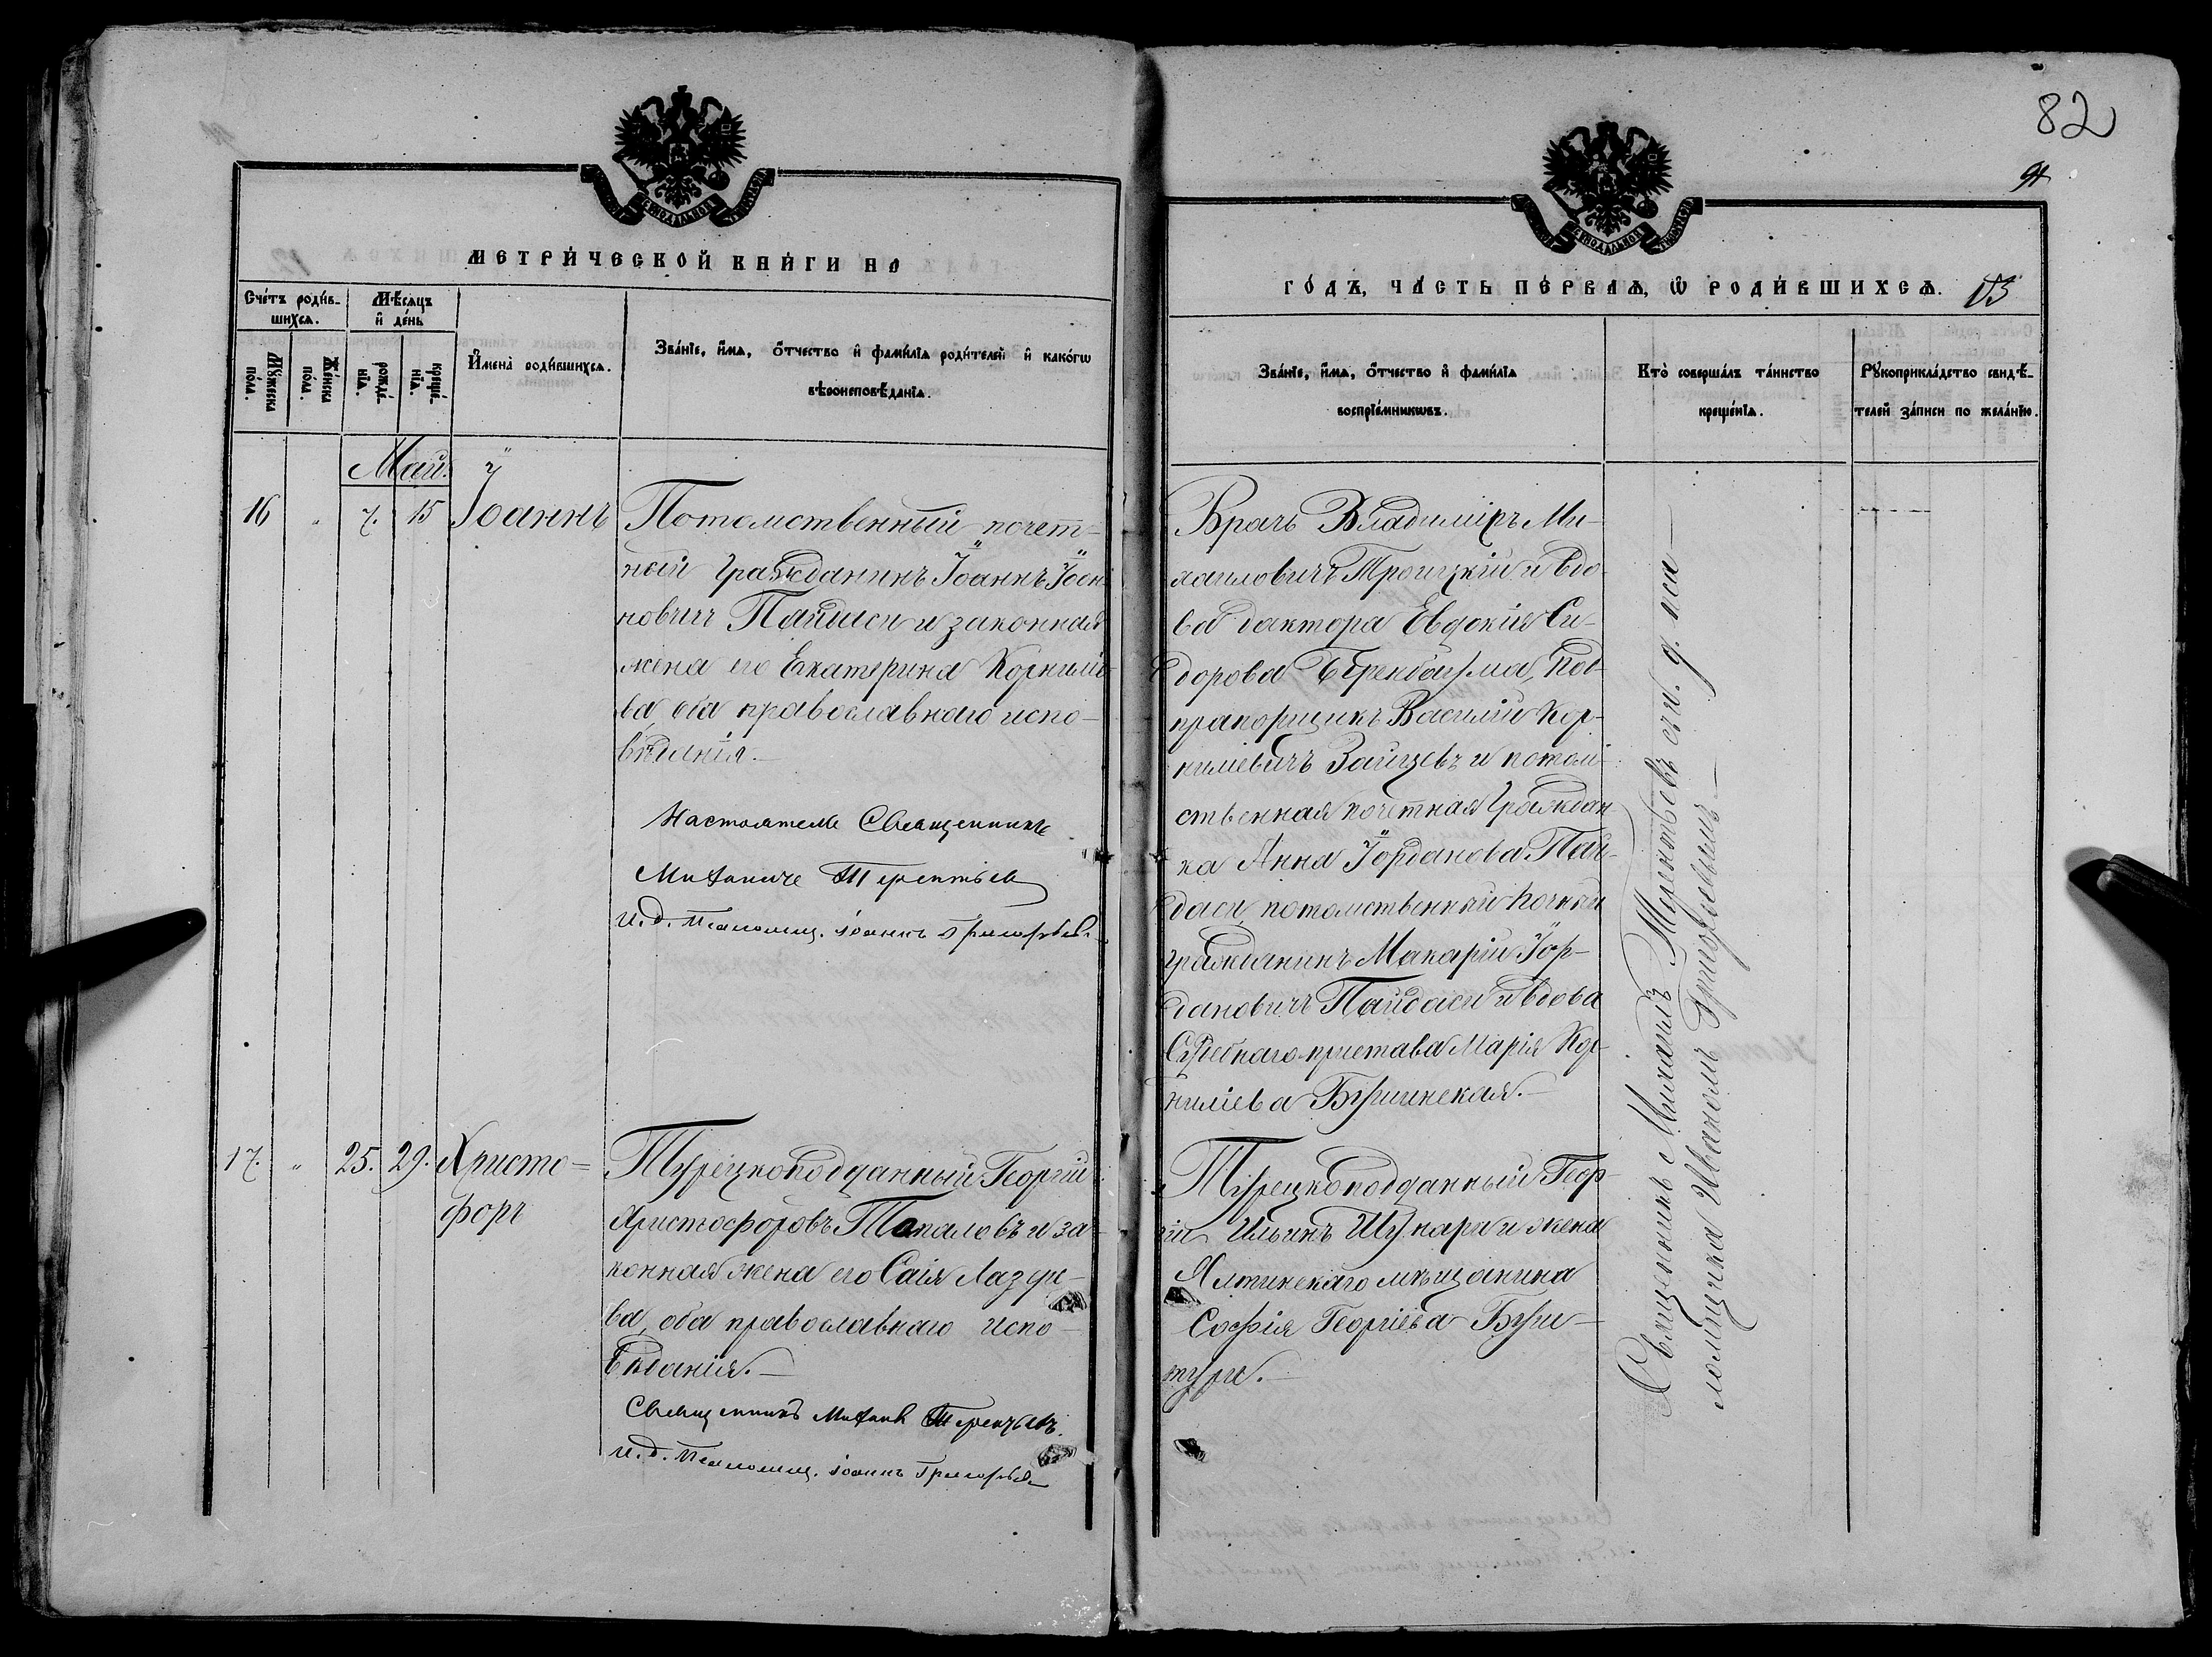 82
91
МЕТРИ́ЧЕСКОЙ КНИ́ГИ НА
ГО́ДЪ, ЧА́СТЬ ПЕ́РВАѦ, Ѡ РОДИ́ВШИХСѦ. 13
Сче́тъ роди́в-
шихсѧ.
Мѣ́сѧцъ
и҆ де́нь
Мꙋ́жеска по́ла.
Же́нска по́ла.
рожде́-
нїѧ.
креще́-
нїѧ.
И҆мена̀ роди́вшихсѧ.
Зва́нїе, и҆́мѧ, ѻ҆́тчество и҆ фами́лїѧ роди́телей и҆ како́гѡ
вѣроисповѣ́данїѧ.
Зва́нїе, и҆́мѧ, ѻ҆́тчество и҆ фами́лїѧ
воспрїе́мникѡвъ.
Кто̀ соверша́лъ та́инство
креще́нїѧ.
Рꙋкоприкла́дство свидѣ́-
телей за́писи по жела́нїю.
Май.
16 " 7. 15 Іоаннъ
Потомственный почет-
ный гражданинъ Іоаннъ Іоан
новичъ Пайдаси и законная
жена его Екатерина Корнилі
ва, оба православнаго испо-
вѣданія.—
Настоятель Священникъ
Михаилъ Терентьев
и. д. псаломщ. іоаннъ Григорьевъ
Врачъ Владиміръ Ми-
хаиловичъ Троицкій и вдо-
ва доктора Евдокія Си-
дорова Беренбаума, под-
прапорщикъ Василій Кор-
ниліевичъ Зайцевъ и потом-
ственная почетная граждан
ка Анна Іорданова Пай-
даси, потомственный поч.ный
гражданинъ Макарій Іор-
дановичъ Пайдаси и вдова
Судебнаго пристава Марія Кор-
ниліева Бушинская.—
17. " 25. 29. Христо=
форъ
Турецкоподданный Георгій
Христофоровъ Топаловъ и за-
конная жена его Саія Лазаре-
ва, оба православнаго испо-
вѣданія.—
Священникъ Михаилъ Терентьевъ.
и. д. псаломщ. іоаннъ Григорьев
Турецкоподданный Геор-
гій Ильинъ Шукара и жена
Ялтинскаго мѣщанина
Софія Георгіева Буш-
туре.—
Священникъ Михаилъ Терентьевъ съ и. д. пса—
ломщика Иваномъ Григорьевымъ—